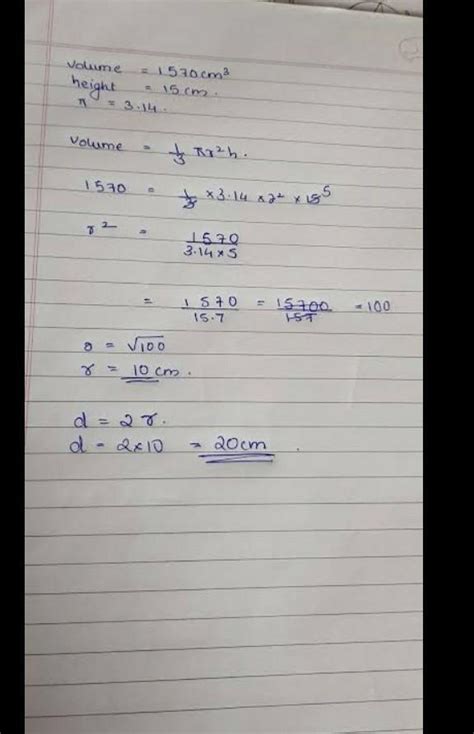 volume = 1570cm³
height = 15cm.
π = 3.14.
volume = 1/3 πr²h.
1570 = 1/3 × 3.14 × r² × 15 5
r² = 1570/3.14×5
= 1570/15.7 = 15700/157 = 100
r = √100
r = 10cm.
d = 2r.
d = 2×10 = 20cm.